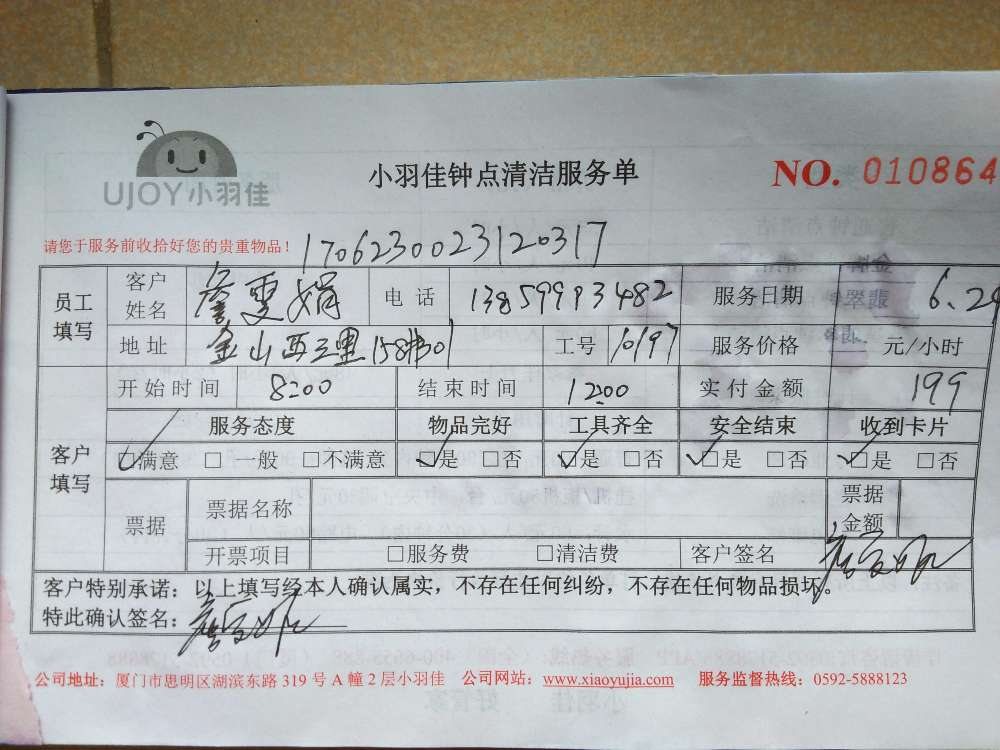 UJOY小羽佳
小羽佳钟点清洁服务单
NO. 010864
请您于服务前收拾好您的贵重物品！ 1706230023120317
员工填写 客户姓名 詹雯娟 电话 13859993482 服务日期 6.29
地址 金山西三里 工号 16197 服务价格 元/小时
开始时间 8:00 结束时间 12:00 实付金额 199
客户填写 服务态度 物品完好 工具齐全 安全结束 收到卡片
☑满意 □一般 □不满意 ☑是 □否 ☑是 □否 ☑是 □否 ☑是 □否
票据 票据名称 票据金额
开票项目 □服务费 □清洁费 客户签名
客户特别承诺：以上填写经本人确认属实，不存在任何纠纷，不存在任何物品损坏。
特此确认签名：
公司地址：厦门市思明区湖滨东路 319 号 A 幢 2 层小羽佳 公司网站：www.xiaoyujia.com 服务监督热线：0592-5888123